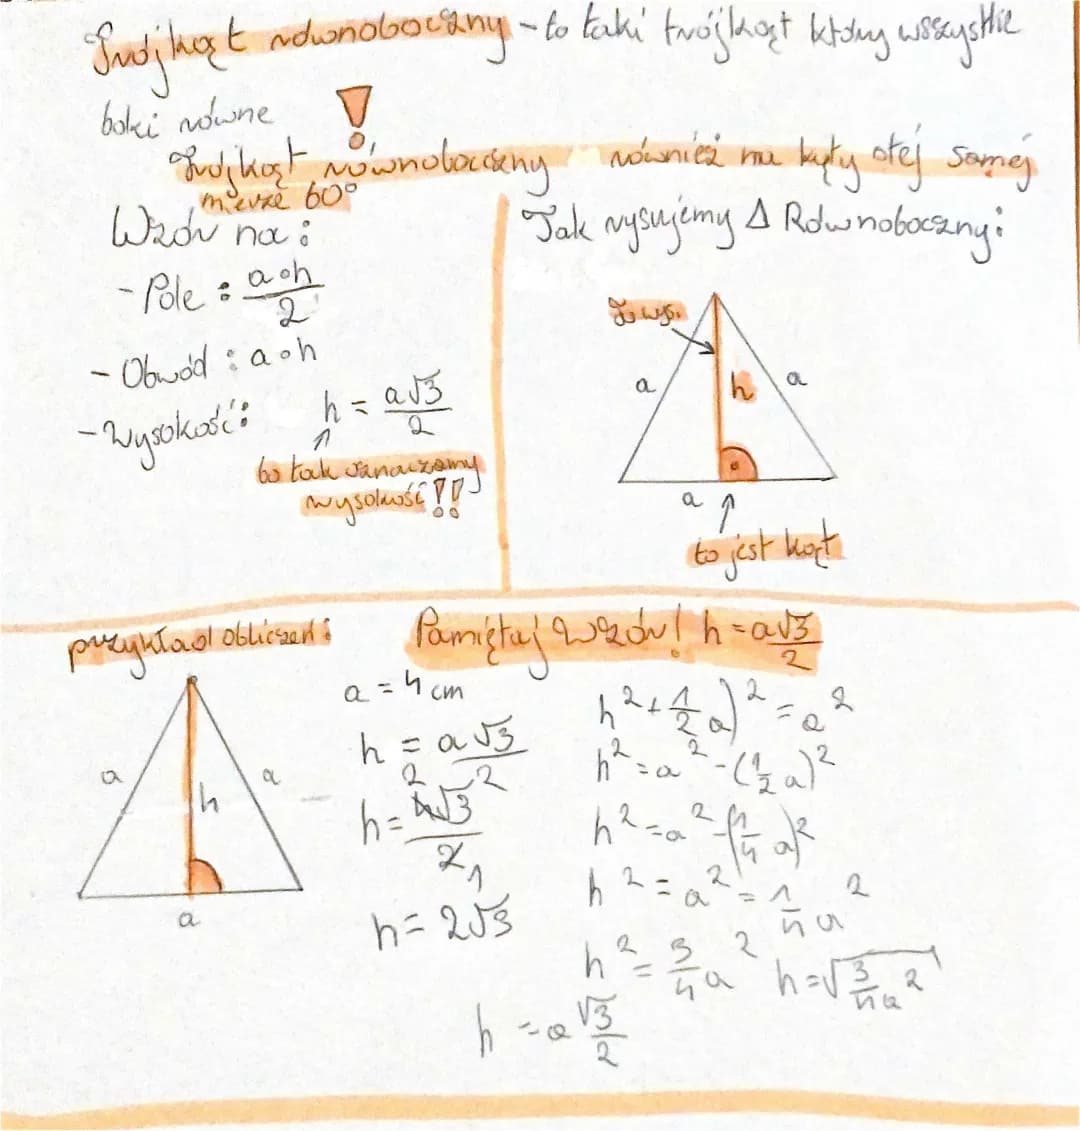 Trójkąt równoboczny - to taki trójkąt który wszystkie
boki równe !
Trójkąt równoboczny również ma kąty otej samej
mierze 60°
Wzór na:
- Pole : a∘h/2
- Obwód : a∘h
- Wysokość: h = a√3/2
↑
bo tak oznaczamy
wysokość!!
Tak rysujemy Δ Równoboczny:
To wys.
a
h
a
a
↑
to jest kąt
przykład obliczeń:
a
h
a
a
Pamiętaj Wzór! h = a√3/2
a = 4 cm
h = a√3/2
h = 4√3/2 1
h = 2√3
h² + 1/2 a)² = a²
h² = a² - (1/2 a)²
h² = a² - (1/4 a)²
h² = a² = 1/4 a²
h² = 3/4 a² h = √3/4 a²
h = a √3/2